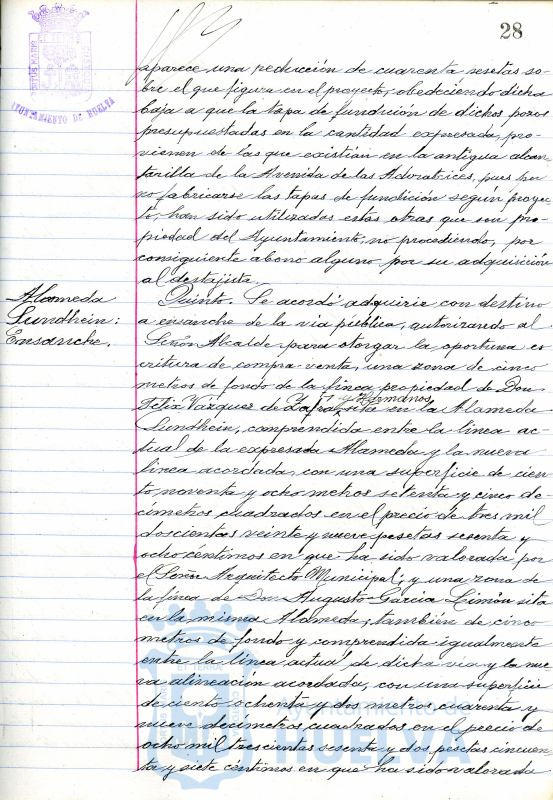 28
AYUNTAMIENTO DE HUELVA
aparece una reducción de cuarenta pesetas so-
bre el que figura en el proyecto, obedeciendo dicha
baja a que la tapa de fundición de dichos pozos
presupuestadas en la cantidad expresada, pro-
vienen de las que existian en la antigua alcan-
tarilla de la Avenida de las Adoratrices, pues
no fabricarse las tapas de fundición según proyec-
to, han sido utilizadas estas otras que son pro-
piedad del Ayuntamiento, no procediendo, por
consiguiente abono alguno por su adquisición
al destajista.
Alameda
Sundhein:
Ensanche.
Quinto. Se acordó adquirir con destino
a ensanche de la via pública, autorizando al
Señor Alcalde para otorgar la oportuna es-
critura de compra-venta, una zona de cinco
metros de fondo de la finca propiedad de Don
Felix Vazquez de Zafra y Hermanos, sita en la Alameda
Sundhein, comprendida entre la linea ac-
tual de la expresada Alameda y la nueva
linea acordada, con una superficie de cien-
to noventa y ocho metros setenta y cinco de-
címetros cuadrados en el precio de tres mil
doscientas veinte y nueve pesetas sesenta y
ocho céntimos en que ha sido valorada por
el Señor Arquitecto Municipal; y una zona de
la finca de Don Augusto Garcia Limón sita
en la misma Alameda, también de cinco
metros de fondo y comprendida igualmente
entre la linea actual de dicha via y la nue-
va alineación acordada, con una superficie
de ciento ochenta y dos metros cuarenta y
nueve decímetros cuadrados en el precio de
ocho mil trescientas sesenta y dos pesetas cincuen-
ta y siete céntimos en que ha sido valorada
Ayuntamiento de
HUELVA